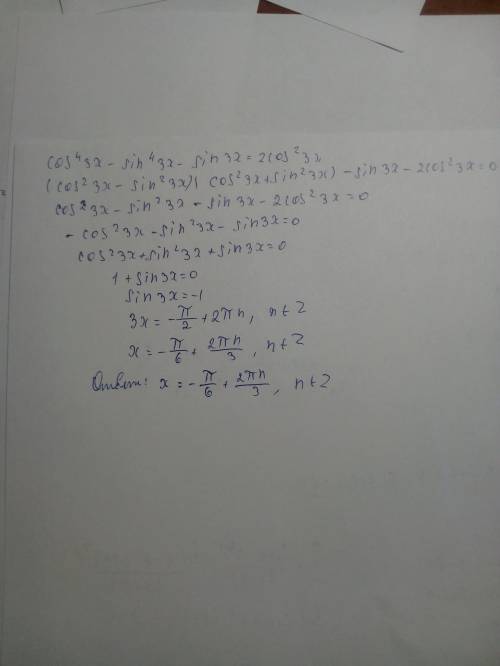 cos⁴3x - sin⁴3x - sin3x = 2cos²3x
(cos²3x - sin²3x)(cos²3x + sin²3x) - sin3x - 2cos²3x = 0
cos²3x - sin²3x - sin3x - 2cos²3x = 0
- cos²3x - sin²3x - sin3x = 0
cos²3x + sin²3x + sin3x = 0
1 + sin3x = 0
sin3x = -1
3x = -π/2 + 2πn, n∈Z
x = -π/6 + 2πn/3, n∈Z
Ответ: x = -π/6 + 2πn/3, n∈Z